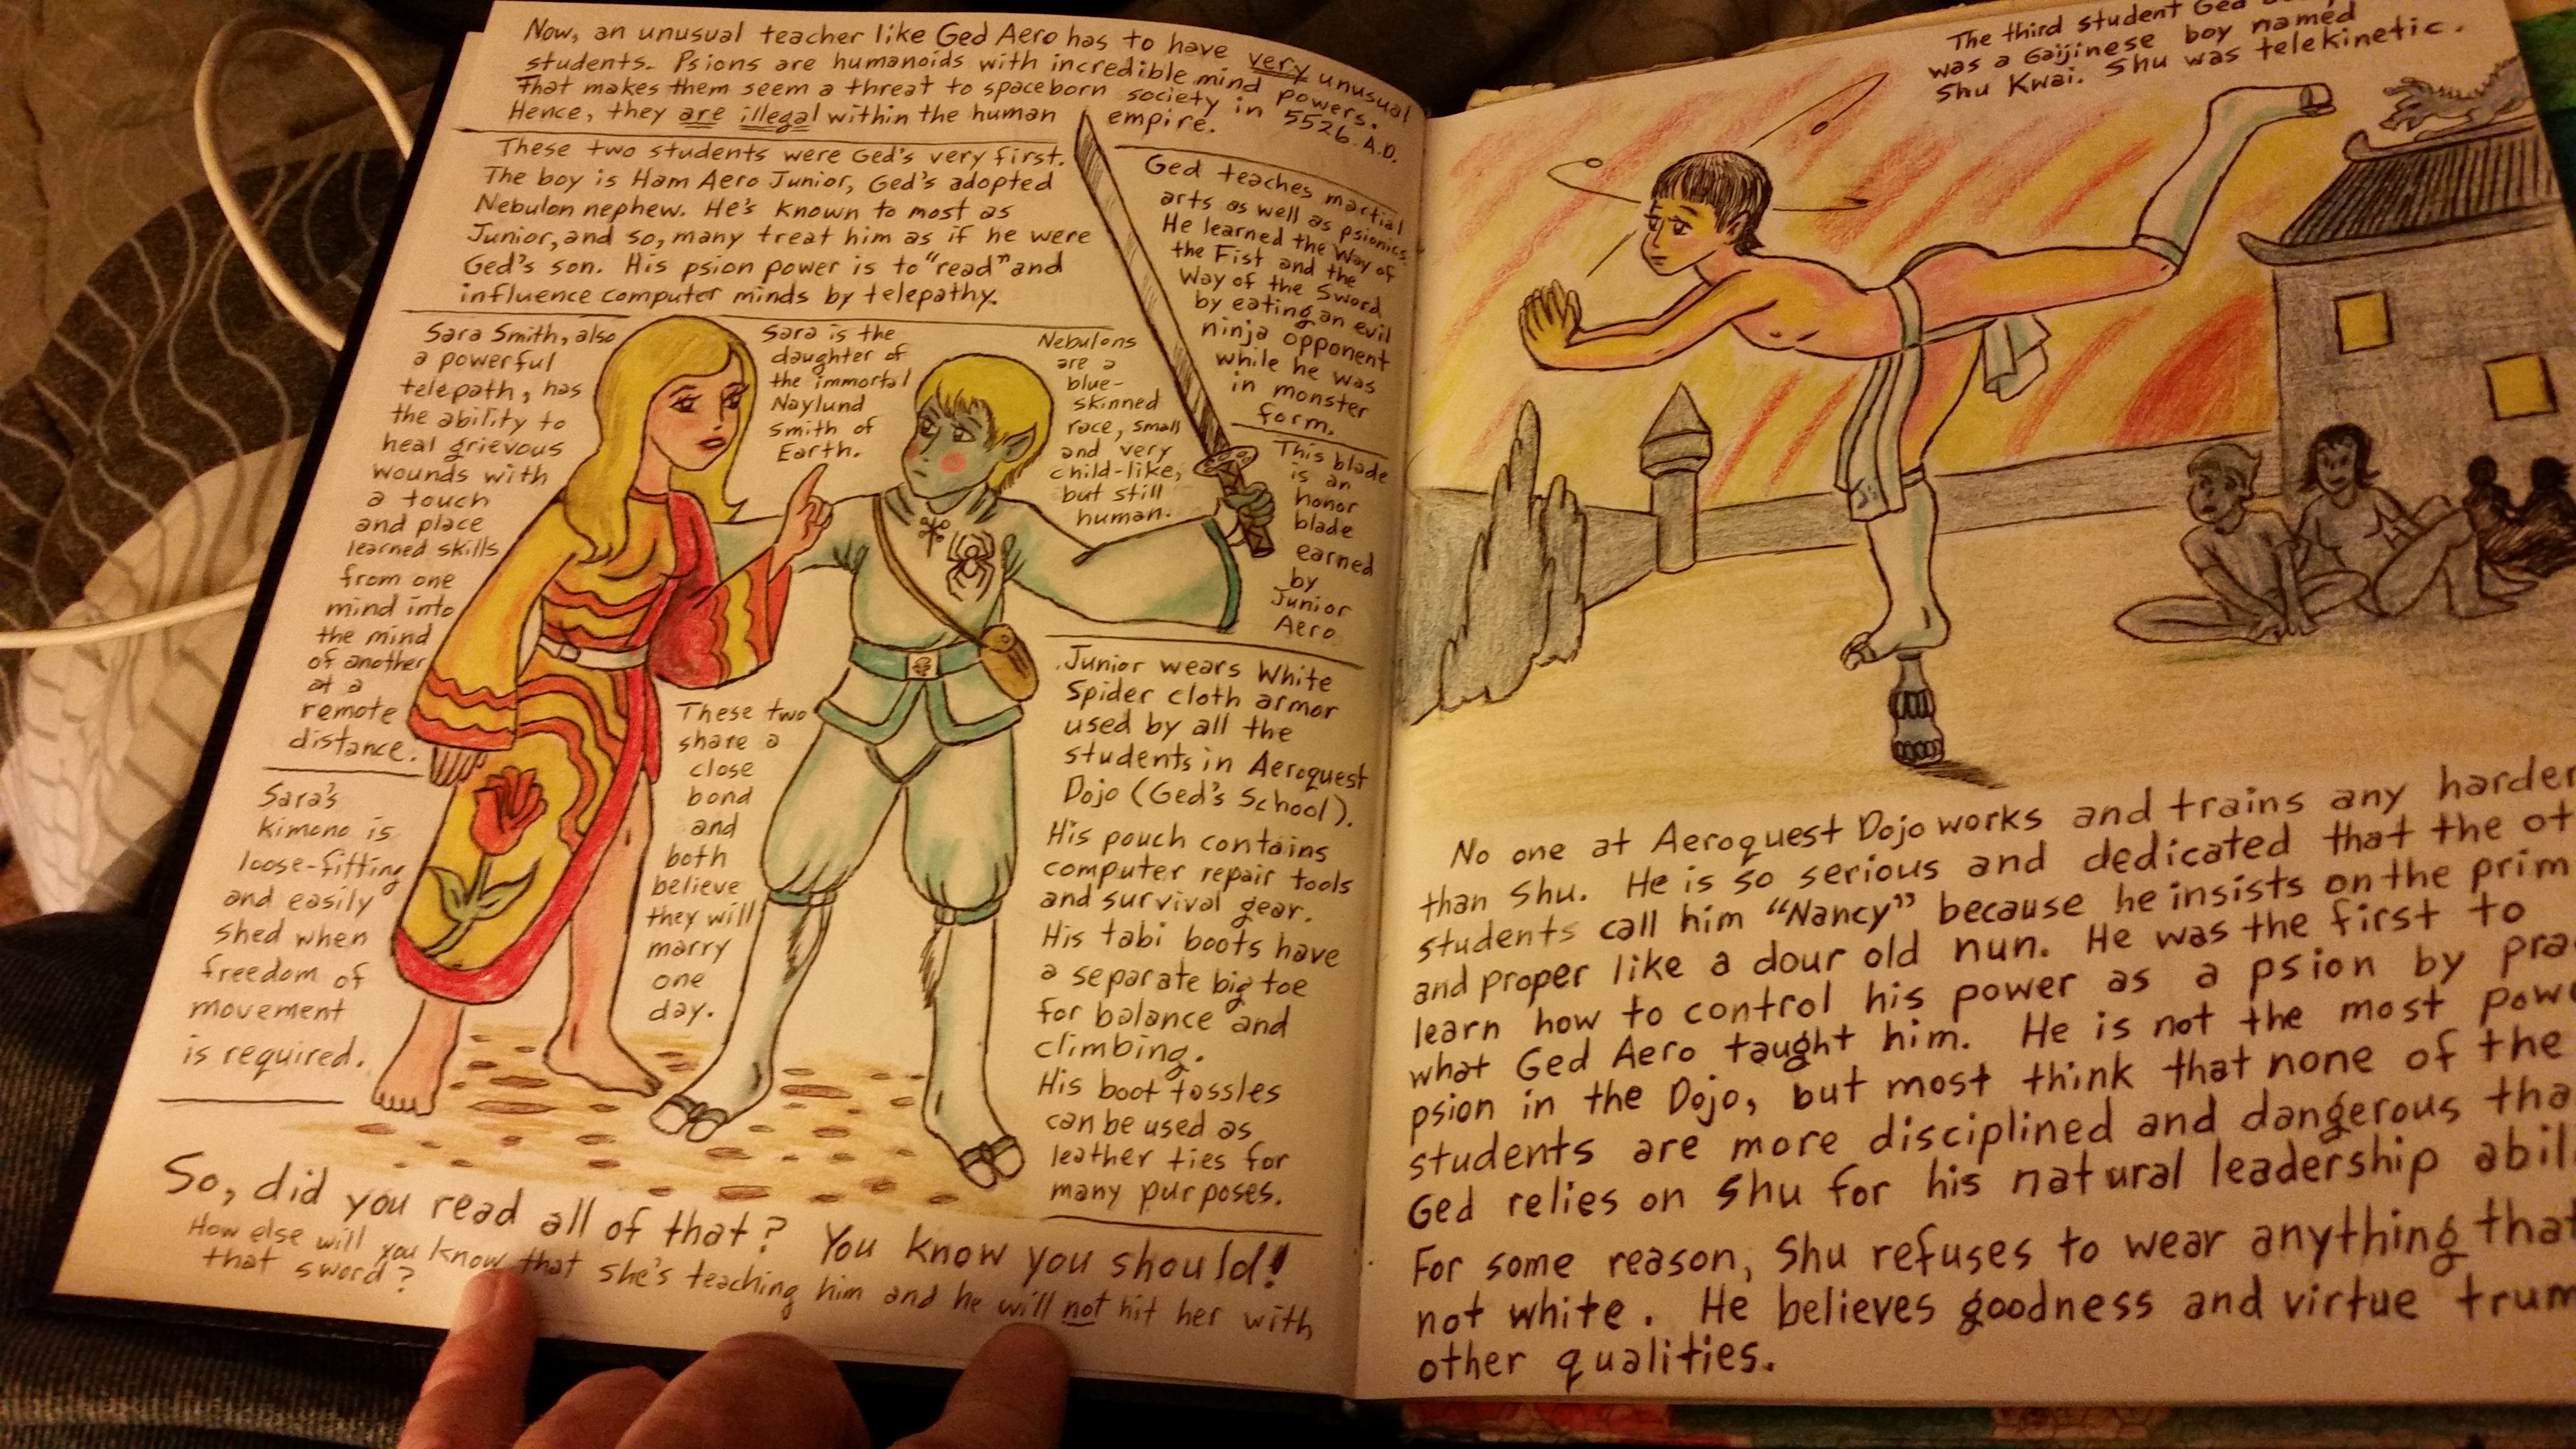 Now, an unusual teacher like Ged Aero has to have very unusual
students. Psions are humanoids with incredible mind powers.
That makes them seem a threat to spaceborn society in 5526 A.D.
Hence, they are illegal within the human empire.
These two students were Ged's very first.
The boy is Ham Aero Junior, Ged's adopted
Nebulon nephew. He's known to most as
Junior, and so, many treat him as if he were
Ged's son. His psion power is to "read" and
influence computer minds by telepathy.
Ged teaches martial
arts as well as psionics.
He learned the Way of
the Fist and the
Way of the Sword
by eating an evil
ninja opponent
while he was
in monster
form.
Sara Smith, also
a powerful
telepath, has
the ability to
heal grievous
wounds with
a touch
and place
learned skills
from one
mind into
the mind
of another
at a
remote
distance.
Sara is the
daughter of
the immortal
Naylund
Smith of
Earth.
Nebulons
are a
blue-
skinned
race, small
and very
child-like,
but still
human.
This blade
is an
honor
blade
earned
by
Junior
Aero
Sara's
kimono is
loose-fitting
and easily
shed when
freedom of
movement
is required.
These two
share a
close
bond
and
both
believe
they will
marry
one
day.
Junior wears White
Spider cloth armor
used by all the
students in Aeroquest
Dojo (Ged's School).
His pouch contains
computer repair tools
and survival gear.
His tabi boots have
a separate big toe
for balance and
climbing.
His boot tassles
can be used as
leather ties for
many purposes.
So, did you read all of that? You know you should!
How else will you know that she's teaching him and he will not hit her with
that sword?
The third student Ged
was a Gaijinese boy named
Shu Kwai. Shu was telekinetic.
No one at Aeroquest Dojo works and trains any harder
than Shu. He is so serious and dedicated that the
students call him "Nancy" because he insists on the
and proper like a dour old nun. He was the first to
learn how to control his power as a psion by
what Ged Aero taught him. He is not the most
psion in the Dojo, but most think that none of the
students are more disciplined and dangerous
Ged relies on Shu for his natural leadership
For some reason, Shu refuses to wear anything that
not white. He believes goodness and virtue
other qualities.